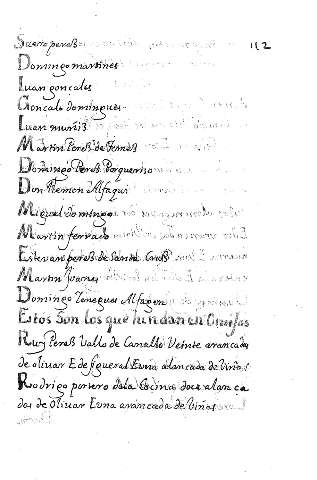 Suero peres 112
Domingo martines
Iuan gonçales
Gonçalo domingues
Iuan muñis
Martin Peres de
Domingo Peres Porquerizo
Don Remon Alfaqui
Miguel domingo
Martin ferrado
Estevan peres de Santa Crus
Martin Juanes
Domingo Alfagem
Estos Son los que
Ruy Peres Vallo de Canalho Veinte arancadas
de olivar E de figueral E una alancada de Viñas
Rodrigo portero dela Cocina doze alança
das de olivar E una arancada de Viñas